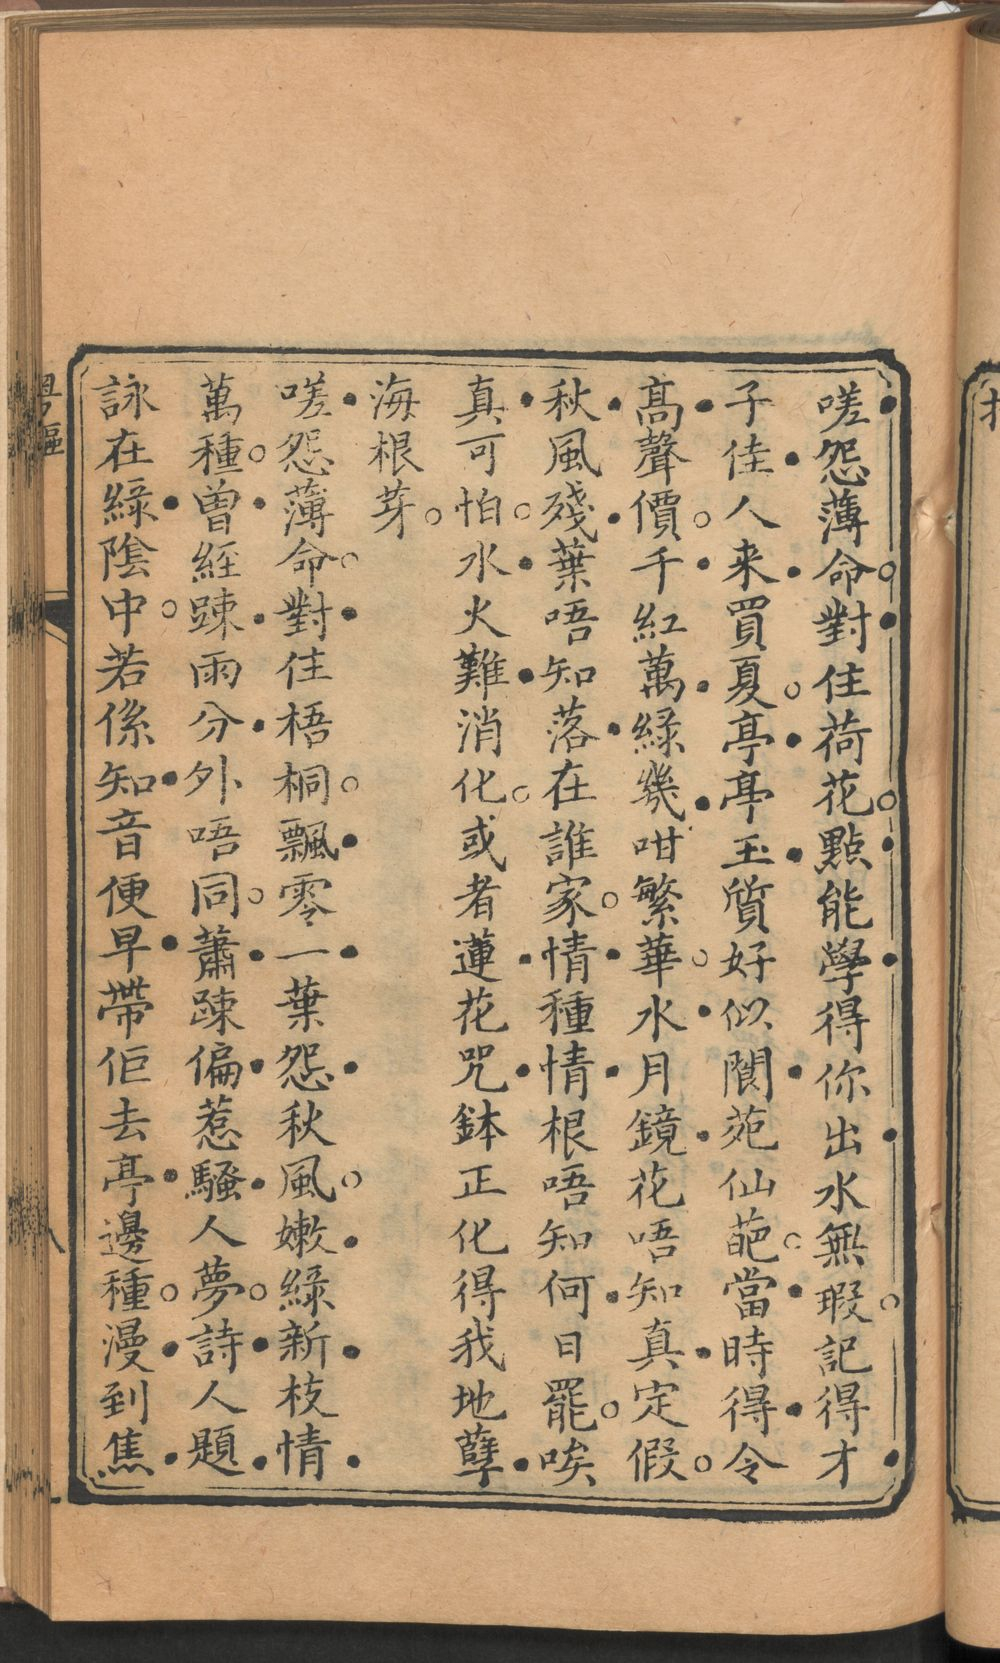 嗟怨薄命對住荷花點能學得你出水無瑕記得才
子佳人来買夏亭亭玉質好似閬苑仙葩當時得令
髙聲價千紅萬綠幾咁繁華水月鏡花唔知真定假
秋風殘葉唔知落在誰家情種情根唔知何日罷唉
真可怕水火難消化或者蓮花咒鉢正化得我地孽
海根芽
嗟怨薄命對住梧桐飄零一葉怨秋風嫩綠新枝情
萬種曾經踈雨分外唔同蕭踈偏惹騷人夢詩人題
詠在綠陰中若係知音便早帶佢去亭邊種漫到焦
粵謳